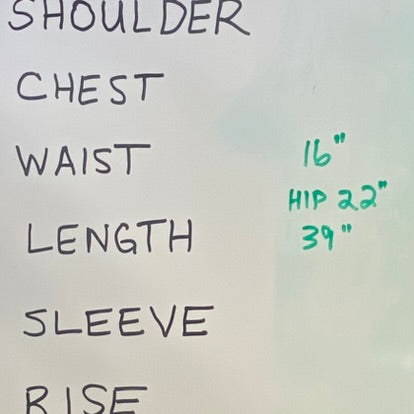 SHOULDER
CHEST
WAIST 16"
HIP 22"
LENGTH 39"
SLEEVE
RISE